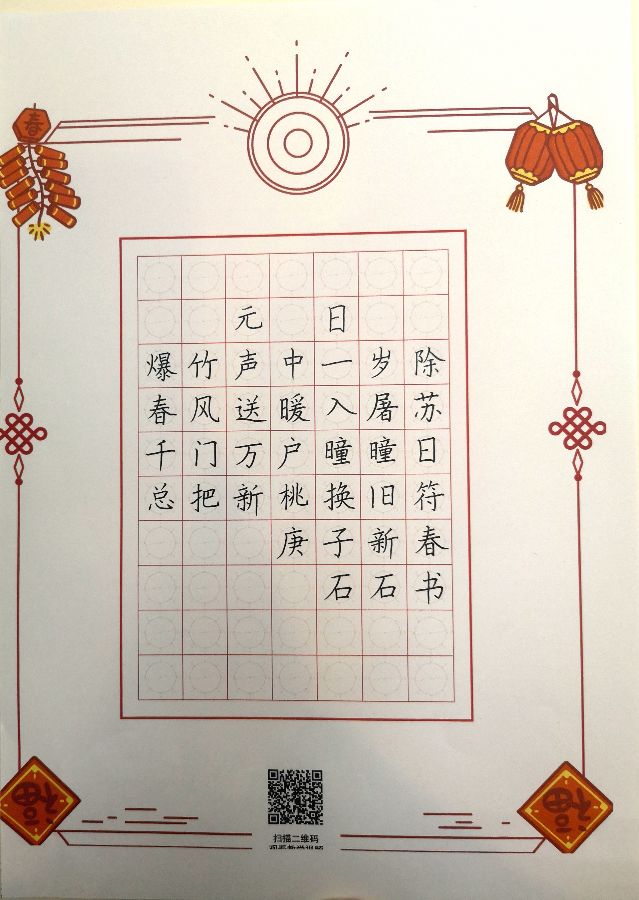 春
元日
爆竹声中一岁除
春风送暖入屠苏
千门万户曈曈日
总把新桃换旧符
庚子新春
石石书
福
福
扫描二维码
观看教学视频